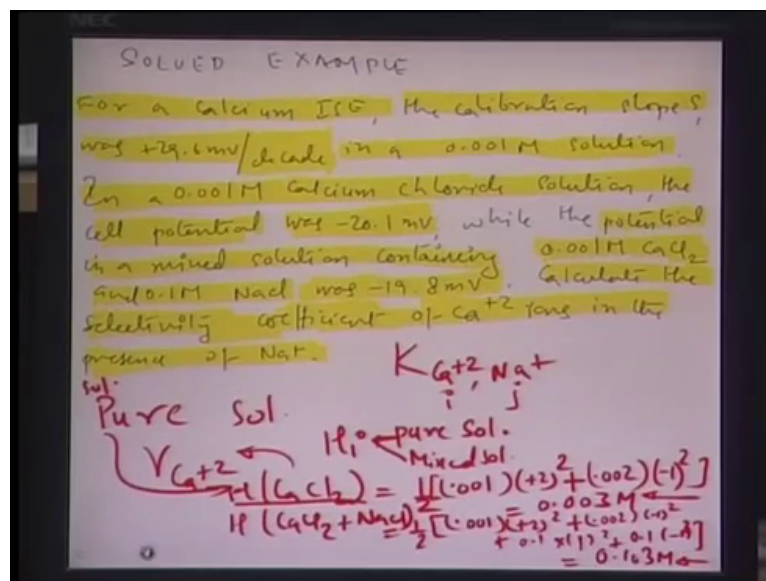 NEC
SOLVED EXAMPLE
For a calcium ISE, the calibration slope S,
was +29.6mv/decade in a 0.001M solution.
In a 0.001M Calcium chloride solution, the
cell potential was -20.1 mv, while the potential
in a mixed solution containing 0.001M CaCl2
and 0.1M Nacl was -19.8mV. Calculate the
selectivity coefficient of Ca+2 ions in the
presence of Na+.
K Ca+2, Na+
i j
Sol.
Pure Sol.
Hi pure Sol.
Mixed sol.
γ Ca+2
H (CaCl2) = 1/2[(.001)(+2)2+(.002)(-1)2]
= 0.003M
H (CaCl2+NaCl) = 1/2[(.001)(+2)2+(.002)(-1)2
+ 0.1×(1)2+0.1(-1)2]
= 0.103M